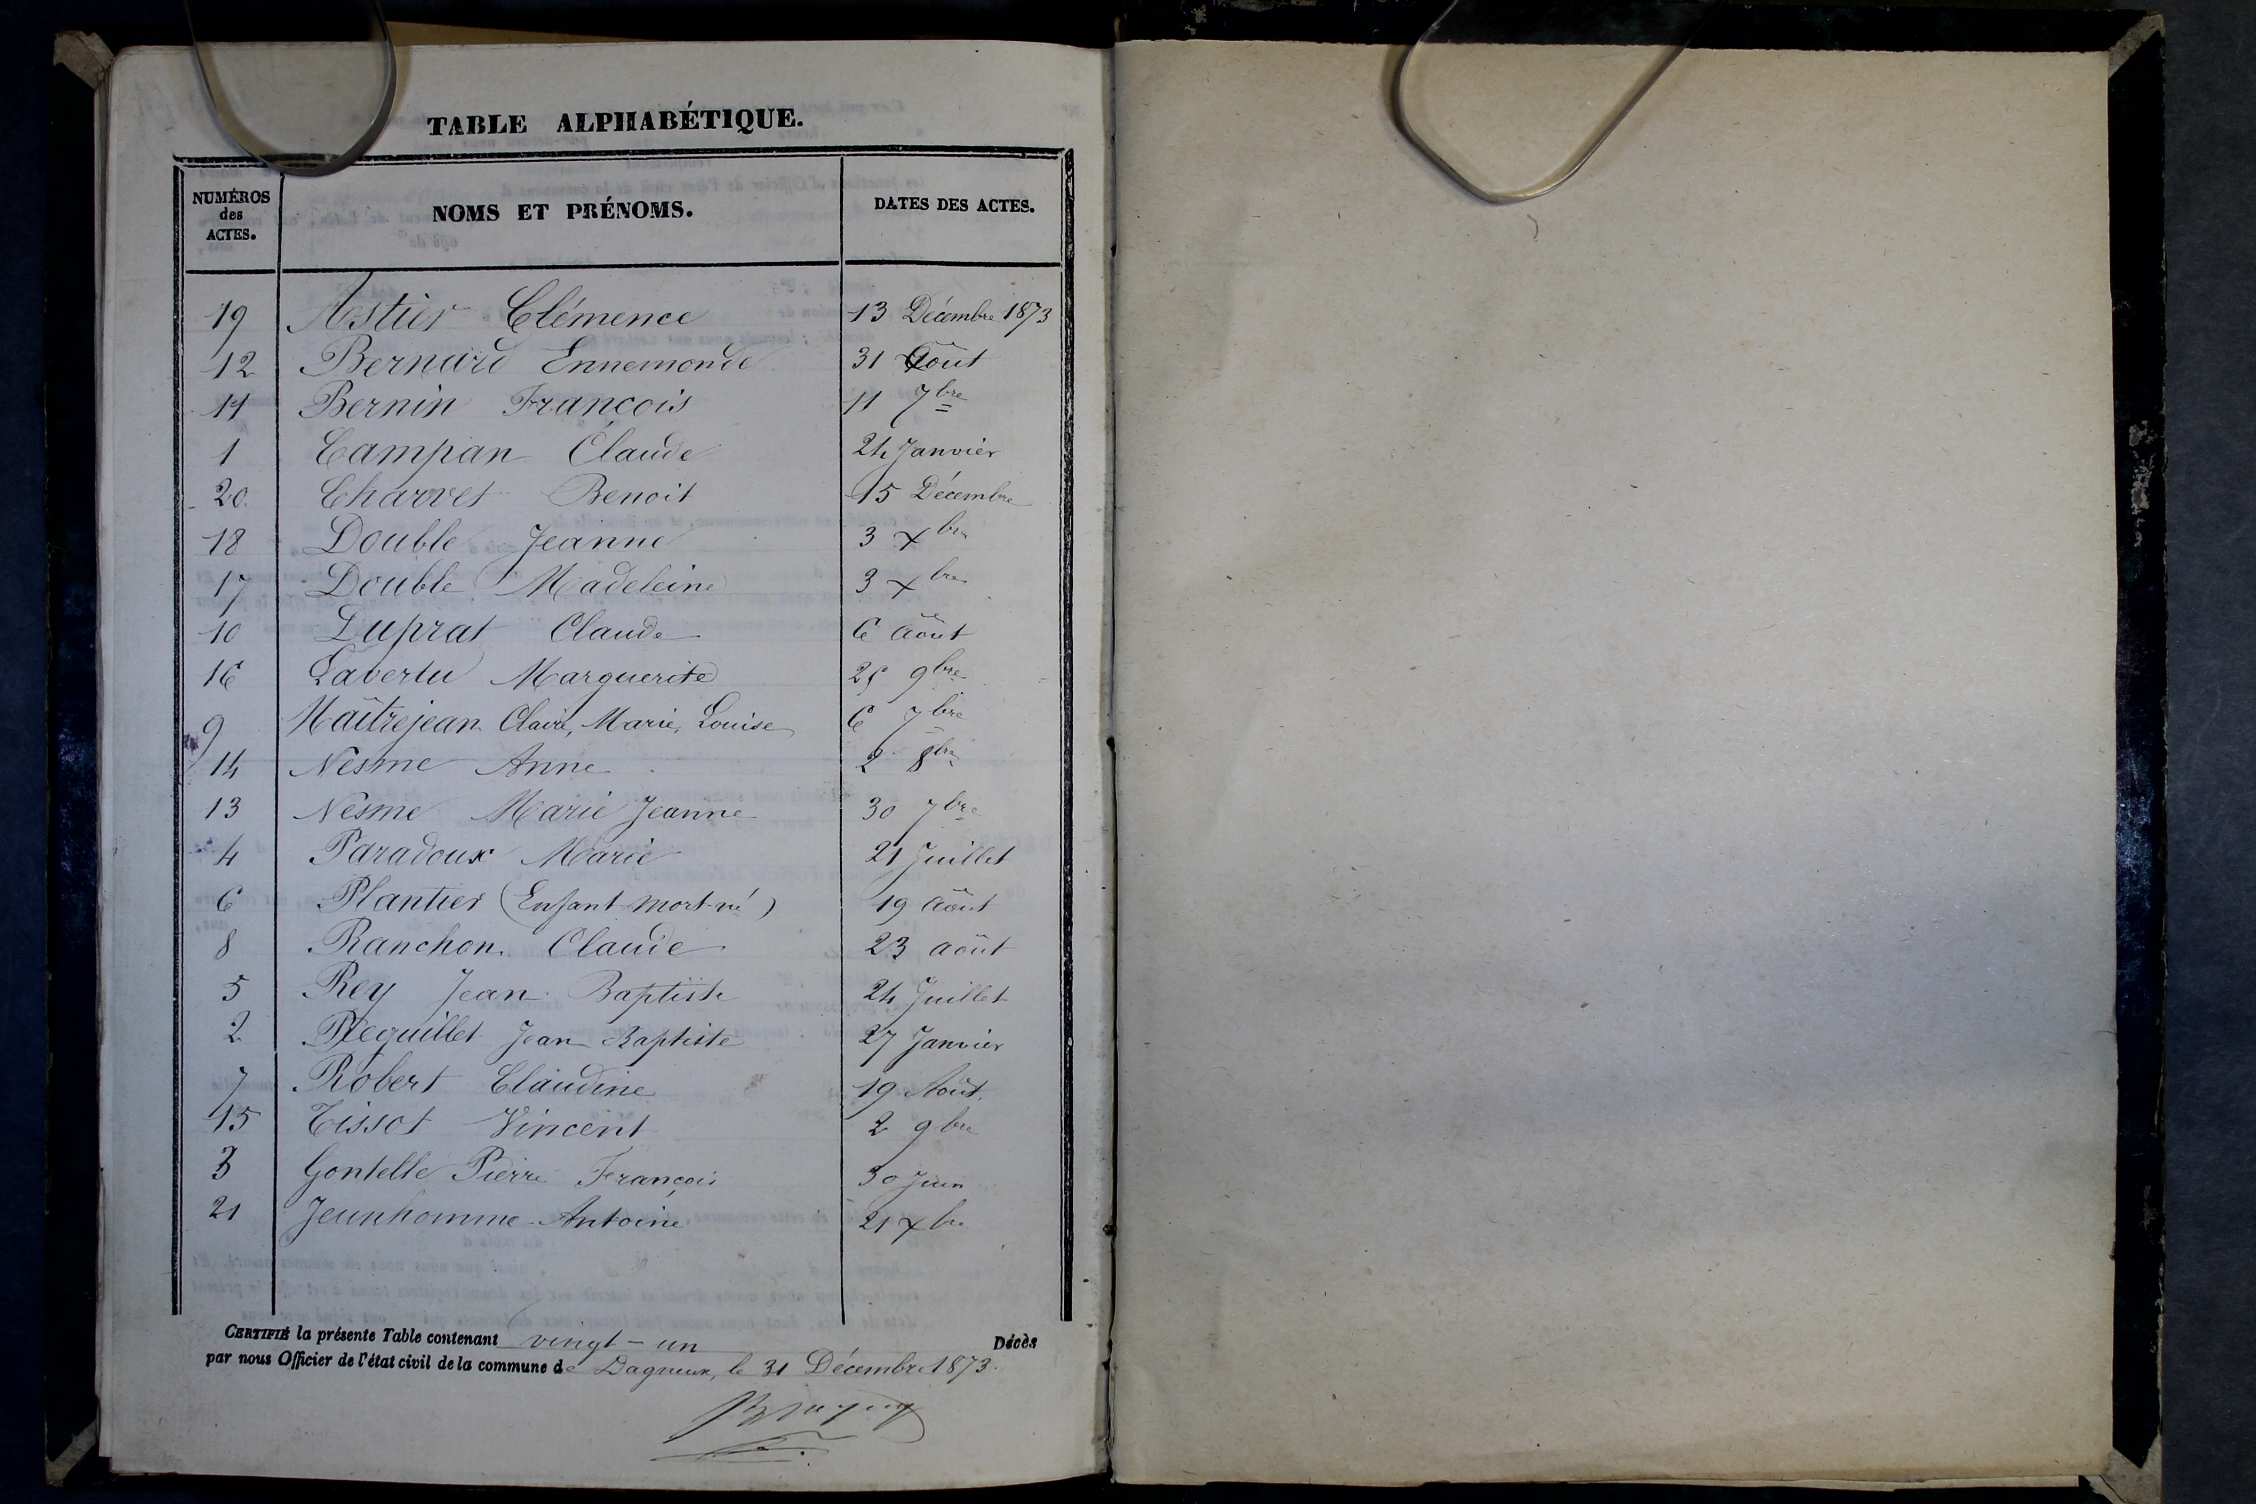 TABLE ALPHABÉTIQUE.
NUMÉROS des ACTES. NOMS ET PRÉNOMS. DATES DES ACTES.
19 Astier Clémence 13 Décembre 1873
12 Bernard Ennemonde 31 Août
11 Bernin François 11 7bre
1 Campan Claude 24 Janvier
20 Charvet Benoit 15 Décembre
18 Double Jeanne 3 Xbre
17 Double Madeleine 3 Xbre
10 Duprat Claude 6 Août
16 Lavertu Marguerite 25 9bre
9 Maîtrejean Claire, Marie, Louise 6 7bre
14 Nesme Anne 2 8bre
13 Nesme Marie Jeanne 30 7bre
4 Paradoux Marie 21 Juillet
6 Plantier (Enfant mort-né) 19 Août
8 Ranchon Claude 23 août
5 Rey Jean Baptiste 24 Juillet
2 Requillet Jean Baptiste 27 Janvier
7 Robert Claudine 19 Août.
15 Tissot Vincent 2 9bre
3 Gontelle Pierre François 30 Juin
21 Jeunhomme Antoine 21 Xbre
CERTIFIÉ la présente Table contenant vingt-un Décès
par nous Officier de l'état civil de la commune de Dagneux, le 31 Décembre 1873.